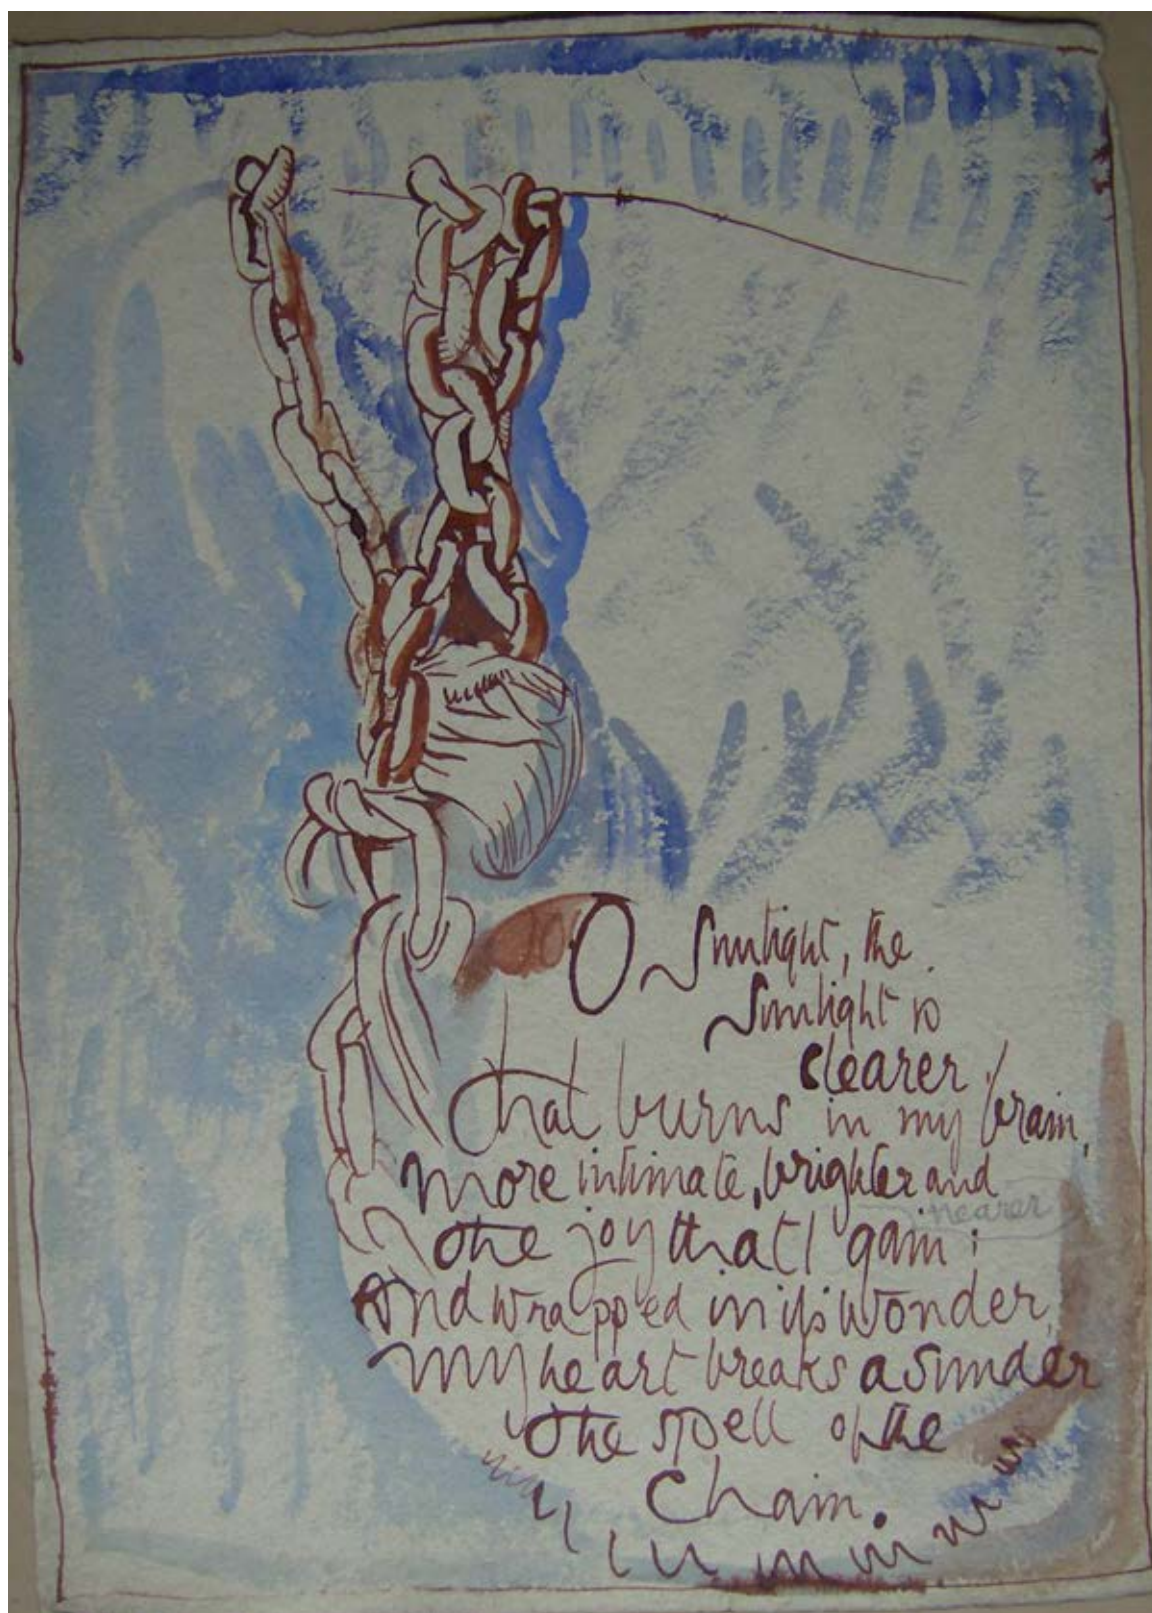 O Sunlight, the
Sunlight is
clearer
that burns in my brain,
More intimate, brighter and
nearer
the joy that I gain;
And wrapped in its wonder,
My heart breaks asunder
the spell of the
Chain.